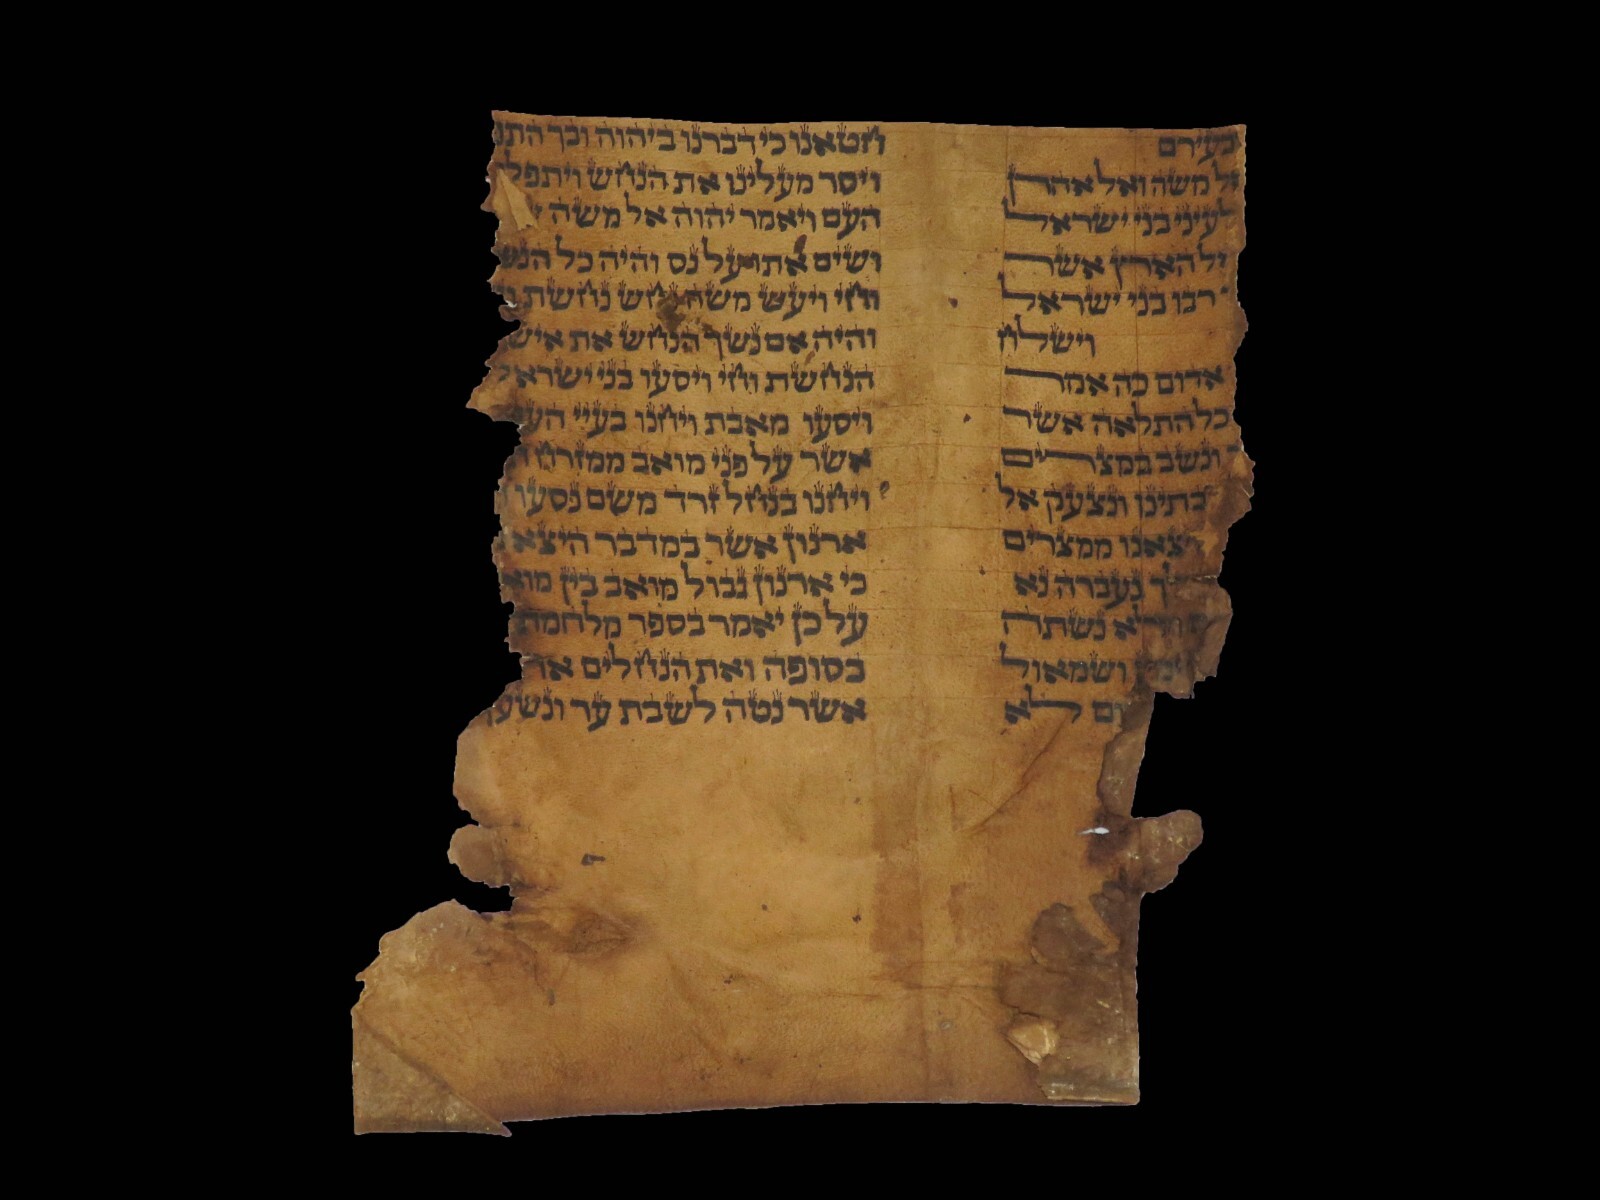 בעירם
משה ואל אהרן
לעיני בני ישראל
הארץ אשר
רבו בני ישראל
וישלח
אדום כה אמר
כל התלאה אשר
ונשב במצרים
ונצעק אל
ממצרים
נעברה נא
נשתה
ושמאול
לא
חטאנו כי דברנו ביהוה ובך
ויסר מעלינו את הנחש
העם ויאמר יהוה אל משה
ושים אתו על נס והיה כל
וחי ויעש משה נחש נחשת
והיה אם נשך הנחש את איש
הנחשת וחי ויסעו בני
ויסעו מאבת ויחנו בעיי
אשר על פני מואב
ויחנו בנחל זרד משם נסעו
ארנון אשר במדבר היצא
כי ארנון גבול מואב בין
על כן יאמר בספר מלחמת
בסופה ואת הנחלים
אשר נטה לשבת ער